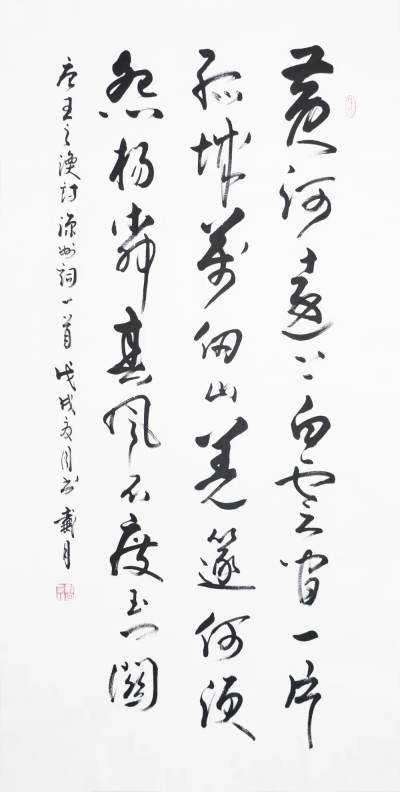 黃河遠上白雲間一片
孤城萬仞山羌篴何須
怨楊柳春風不度玉門關
唐王之渙詩涼州詞一首 戊戌夏月书 戴月